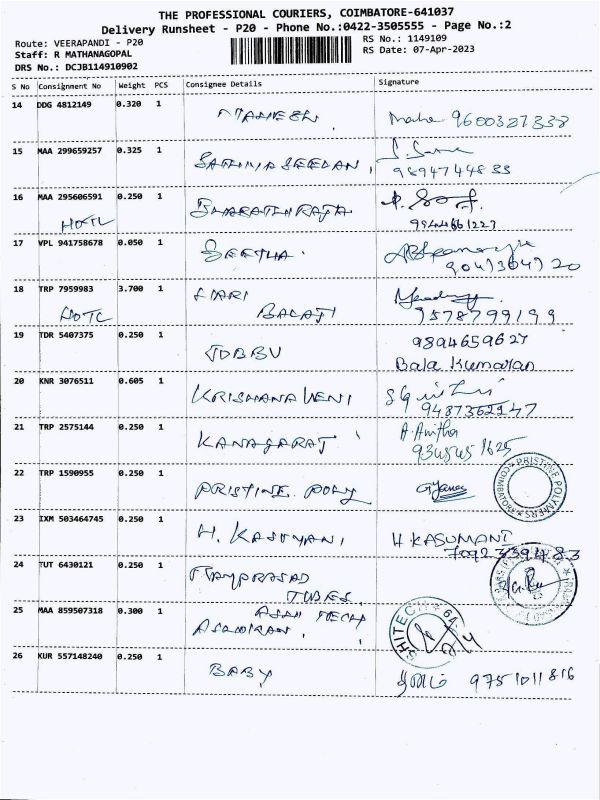 THE PROFESSIONAL COURIERS, COIMBATORE-641037
Delivery Runsheet - P20 - Phone No.:0422-3505555 - Page No.:2
Route: VEERAPANDI - P20
RS No.: 1149109
Staff: R MATHANAGOPAL
RS Date: 07-Apr-2023
DRS No.: DCJB114910902
S No Consignment No Weight PCS Consignee Details Signature
14 DDG 4812149 0.320 1
15 MAA 299659257 0.325 1
16 MAA 295606591 0.250 1 BHARATHIRAJA
17 VPL 941758678 0.050 1 SEETHA.
18 TRP 7959983 3.700 1 HARI
BALAJI 9578799199
19 TDR 5407375 0.250 1 JOBBU 9894659627
Bala Kumaran
20 KNR 3076511 0.605 1 KRISHANA VENI
21 TRP 2575144 0.250 1 KANAGARAJ A. Anitha
22 TRP 1590955 0.250 1 PRISTINE POLY
PRISTINE POLYMERS COIMBATORE
23 IXM 503464745 0.250 1 H. KASTHYANI H KASUMANI
7092339483
24 TUT 6430121 0.250 1 RAMPRASAD
TUBES.
25 MAA 859507318 0.300 1 ASAN TECH
26 KUR 557148240 0.250 1 BABY 9751011816